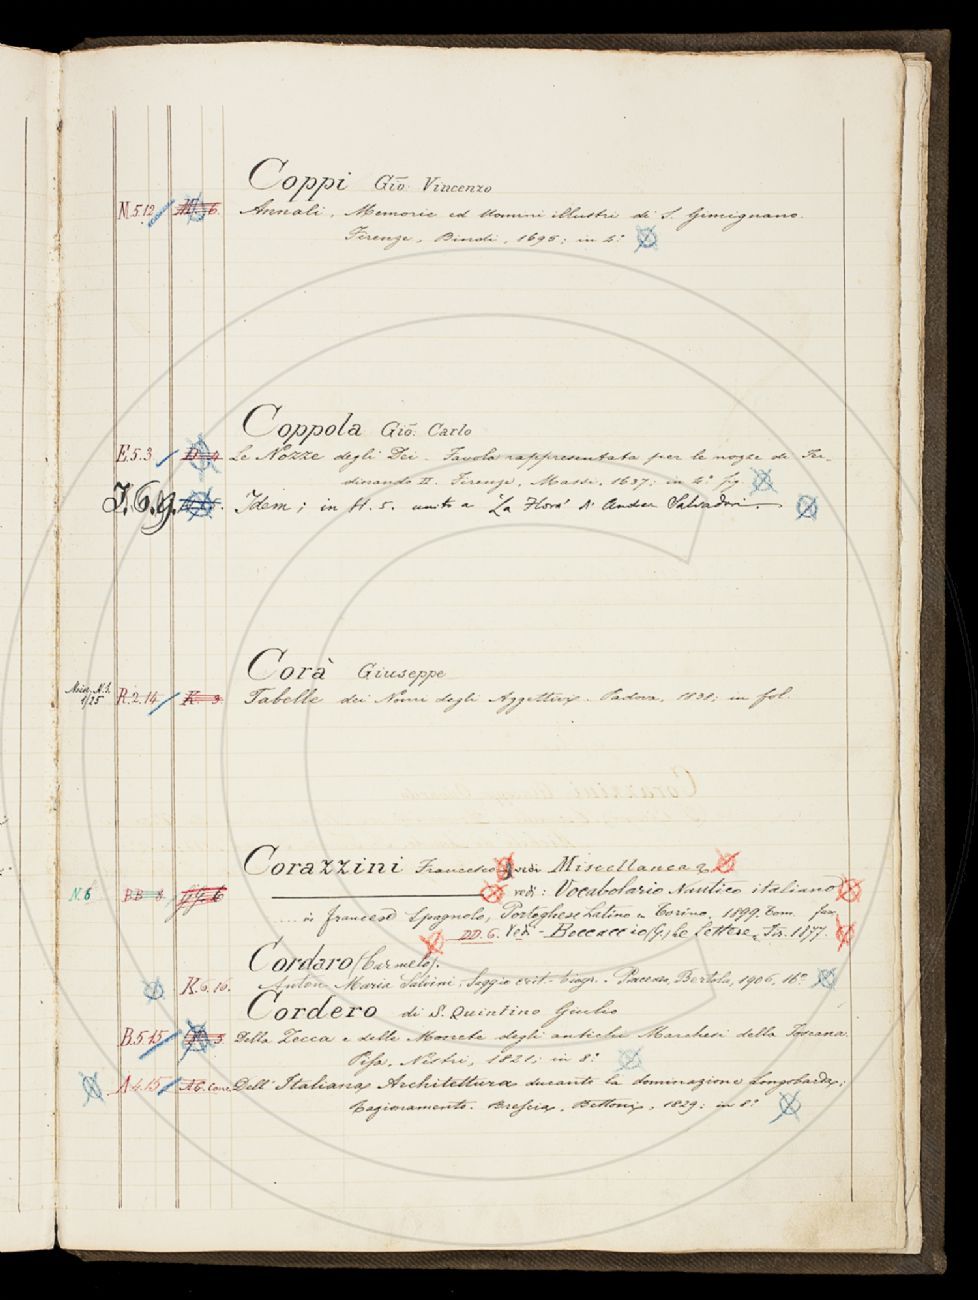 Coppi Gio: Vincenzo
M.5.12 Annali, Memorie ed Uomini illustri di S. Gimignano.
Firenze, Bindi, 1695; in 4.°
Coppola Gio: Carlo
E.5.3 Le Nozze degli Dei - Favola rappresentata per le nozze di Fer-
dinando II. Firenze, Massi, 1637; in 4.° fig.
I.6.9. Idem; in H.5. unito a "La Flora" di Andrea Salvadori.
Corà Giuseppe
Misc. N.S. 1/25 R.2.14 K. 3 Tabelle dei Nomi degli Aggettivi. Padova, 1831; in fol.
Corazzini Francesco vedi Miscellanea
N.6 BB 8 vedi: Vocabolario Nautico italiano
in francese Spagnolo, Portoghese Latino Torino. 1899. tom.
DD.6. Vedi - Boccaccio (G.) Le Lettere, Fir. 1877.
Cordaro (Carmelo).
K.6.16. Anton Maria Salvini: Saggio crit. biogr. - Piacenza, Bertola, 1906, 16.°
Cordero di S. Quintino Giulio
B.5.15 Della Zecca e delle Monete degli antichi Marchesi della Toscana.
Pisa, Nistri, 1821; in 8.°
A.4.15 Dell'Italiana Architettura durante la dominazione Longobarda;
Ragionamento. Brescia, Bettoni, 1829; in 8.°